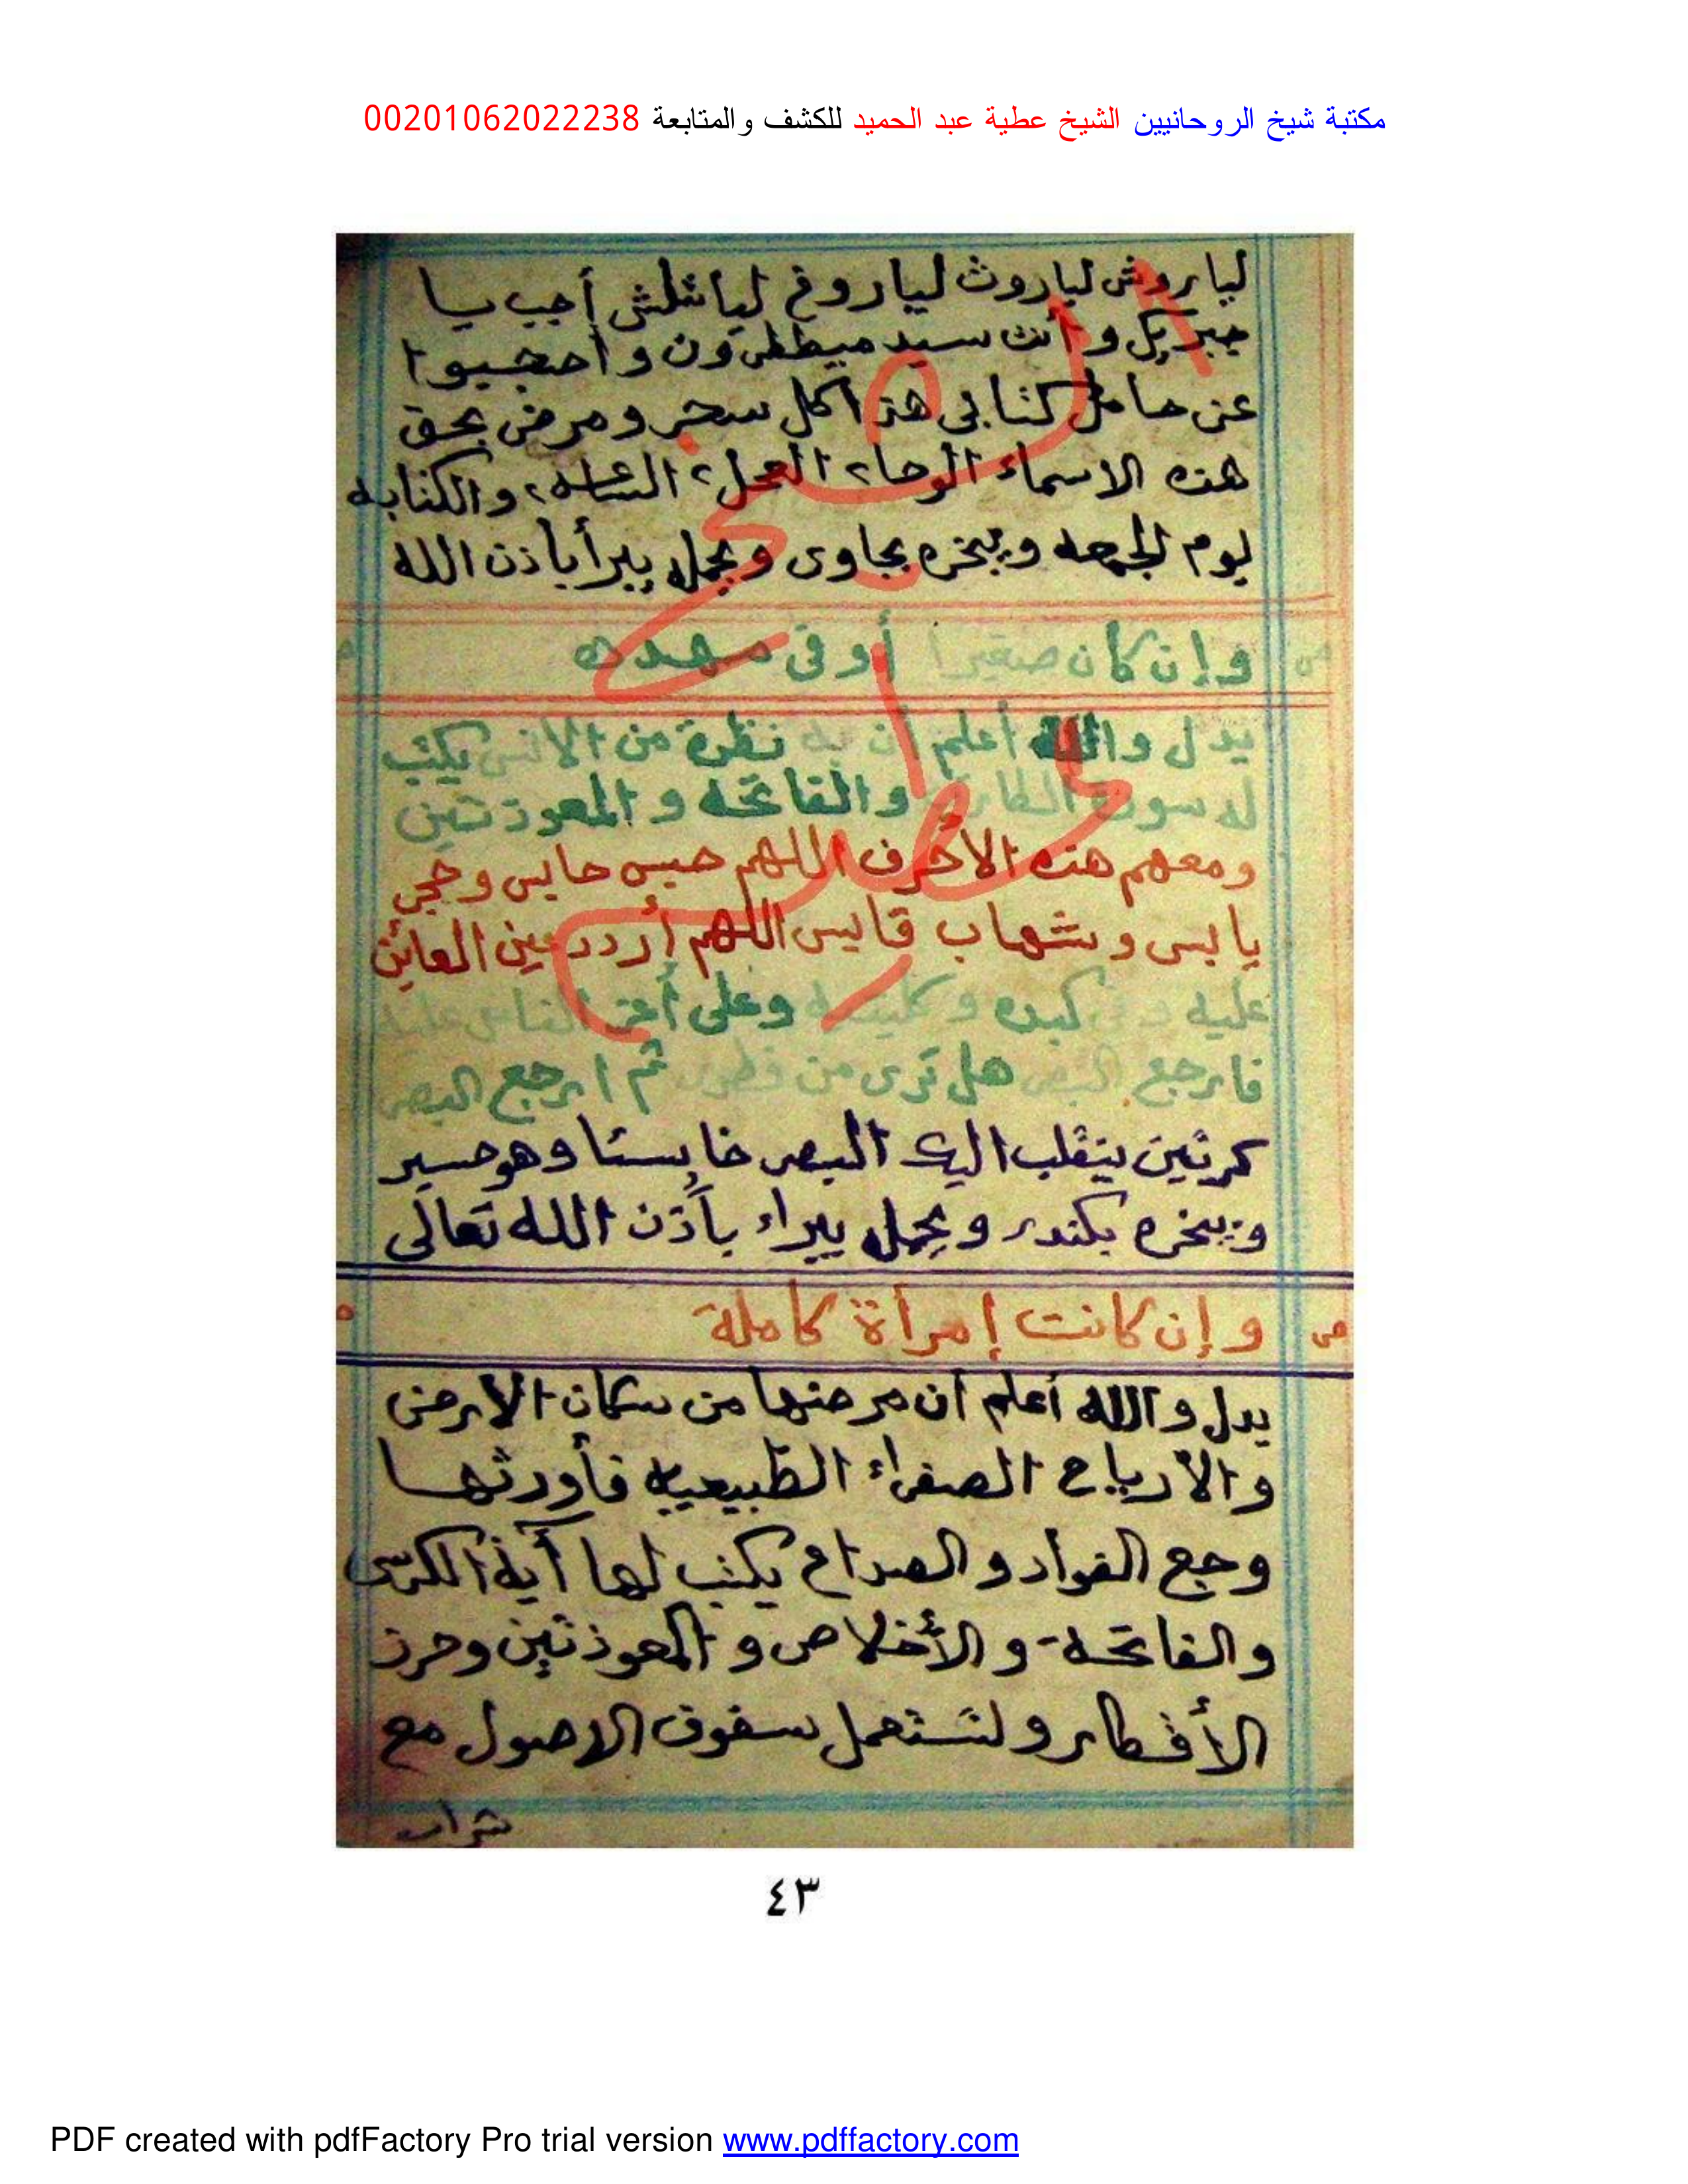 مكتبة شيخ الروحانيين الشيخ عطية عبد الحميد للكشف والمتابعة 00201062022238
لياروش لياروث لياروخ لياشلش أجب يا
جبريل وأنت سيد ميططرون وأحجبوا
عن حامل كتابى هذا كل سحر ومرض بحق
هذه الاسماء الوحا٢ العجل٢ الساعه٢ والكتابه
يوم الجمعه ويبخره بجاوى ويحمله يبرأ باذن الله
وإن كان صغيرا أو فى مهده
يدل والله أعلم أن به نظرة من الانس يكتب
له سورة الطارق والفاتحه والمعوذتين
ومعهم هذه الاحرف اللهم حبس حابس وحجر
يابس وشهاب قابس اللهم أردد عين العائن
عليه وفى كبده وكليته وعلى أحق الناس عليه
فارجع البصر هل ترى من فطور ثم ارجع البصر
كرتين ينقلب اليك البصر خاسئا وهو حسير
ويبخره بكندر ويحمله يبراء بأذن الله تعالى
وإن كانت إمرأة كاملة
يدل والله أعلم أن مرضها من سكان الارض
والأرياح الصفراء الطبيعيه فأورثها
وجع الفواد والصداع يكتب لها آية الكرسى
والفاتحة والأخلاص والمعوذتين وحرز
الأقطار ولتستعمل سفوف الاصول مع
شراب
الشيخ
عطا
٤٣
PDF created with pdfFactory Pro trial version www.pdffactory.com